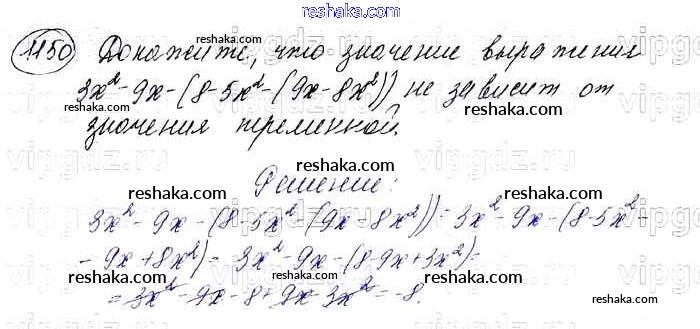 reshaka.com
1150 Докажите, что значение выражения
3x² - 9x - (8 - 5x² - (9x - 8x²)) не зависит от
значения переменной.
reshaka.com
reshaka.com
Решение:
reshaka.com
3x² - 9x - (8 - 5x² - (9x - 8x²)) = 3x² - 9x - (8 - 5x² -
- 9x + 8x²) = 3x² - 9x - (8 - 9x + 3x²) =
= 3x² - 9x - 8 + 9x - 3x² = -8
reshaka.com
reshaka.com
reshaka.com